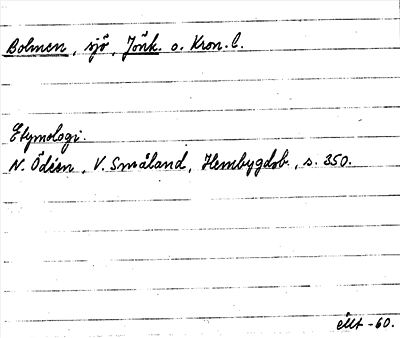 Bolmen, sjö, Jönk. o. Kron. l.
Etymologi.
N. Ödéen, V. Småland, Hembygdsb., s. 350.
-60.